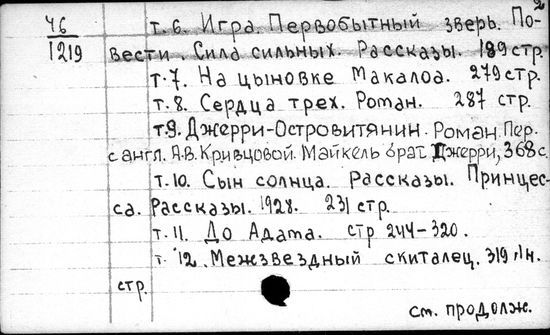 2
46 т. 6. Игра. Первобытный зверь. По-
1219 вести. Сила сильных. Рассказы. 189 стр.
т. 7. На цыновке Макалоа. 279 стр.
т. 8. Сердца трех. Роман. 287 стр.
т. 9. Джерри-Островитянин. Роман. Пер.
с англ. А.В. Кривцовой. Майкель брат Джерри, 368 с.
т. 10. Сын солнца. Рассказы. Принцес-
са. Рассказы. 1928. 231 стр.
т. 11. До Адама. стр 244-320.
т. 12. Межзвездный скиталец. 319 н.
стр.
см. продолж.